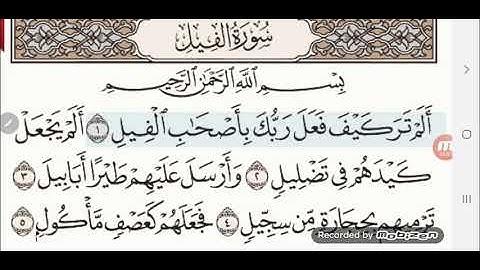 سُورَةُ الفِيلِ
بِسْمِ اللَّهِ الرَّحْمَٰنِ الرَّحِيمِ
أَلَمْ تَرَ كَيْفَ فَعَلَ رَبُّكَ بِأَصْحَابِ الْفِيلِ ١ أَلَمْ يَجْعَلْ
كَيْدَهُمْ فِي تَضْلِيلٍ ٢ وَأَرْسَلَ عَلَيْهِمْ طَيْرًا أَبَابِيلَ ٣
تَرْمِيهِم بِحِجَارَةٍ مِّن سِجِّيلٍ ٤ فَجَعَلَهُمْ كَعَصْفٍ مَّأْكُولٍ ٥
Recorded by Mobizen